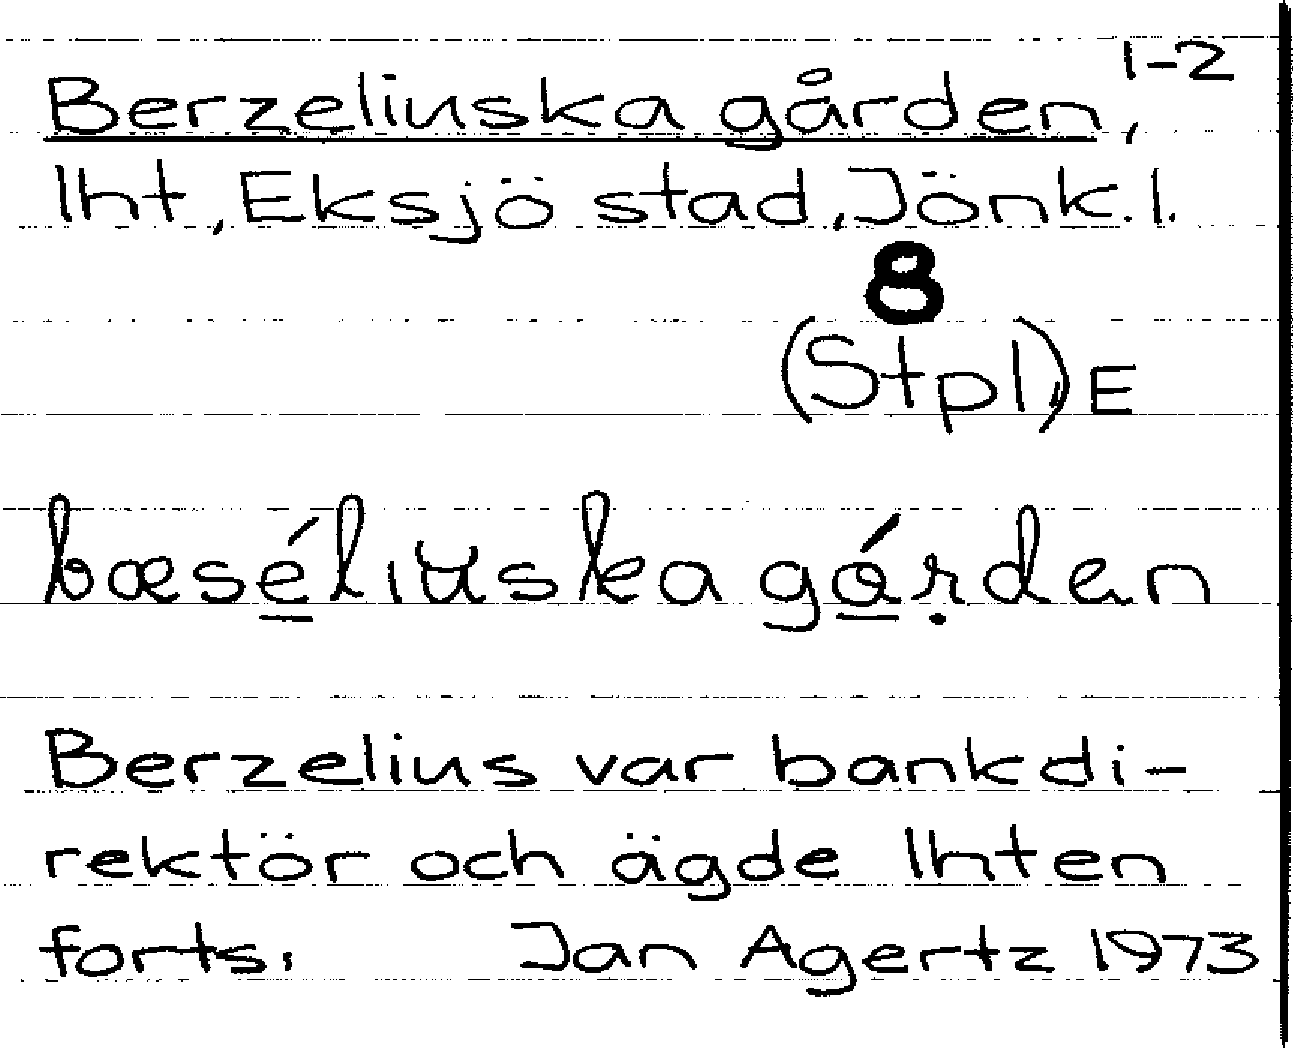 Berzeliuska gården, 1-2
lht, Eksjö stad, Jönk. l.
8
(Stpl) E
bæséliuska gárdan
Berzelius var bankdi-
rektör och ägde lhten
forts. Jan Agertz 1973